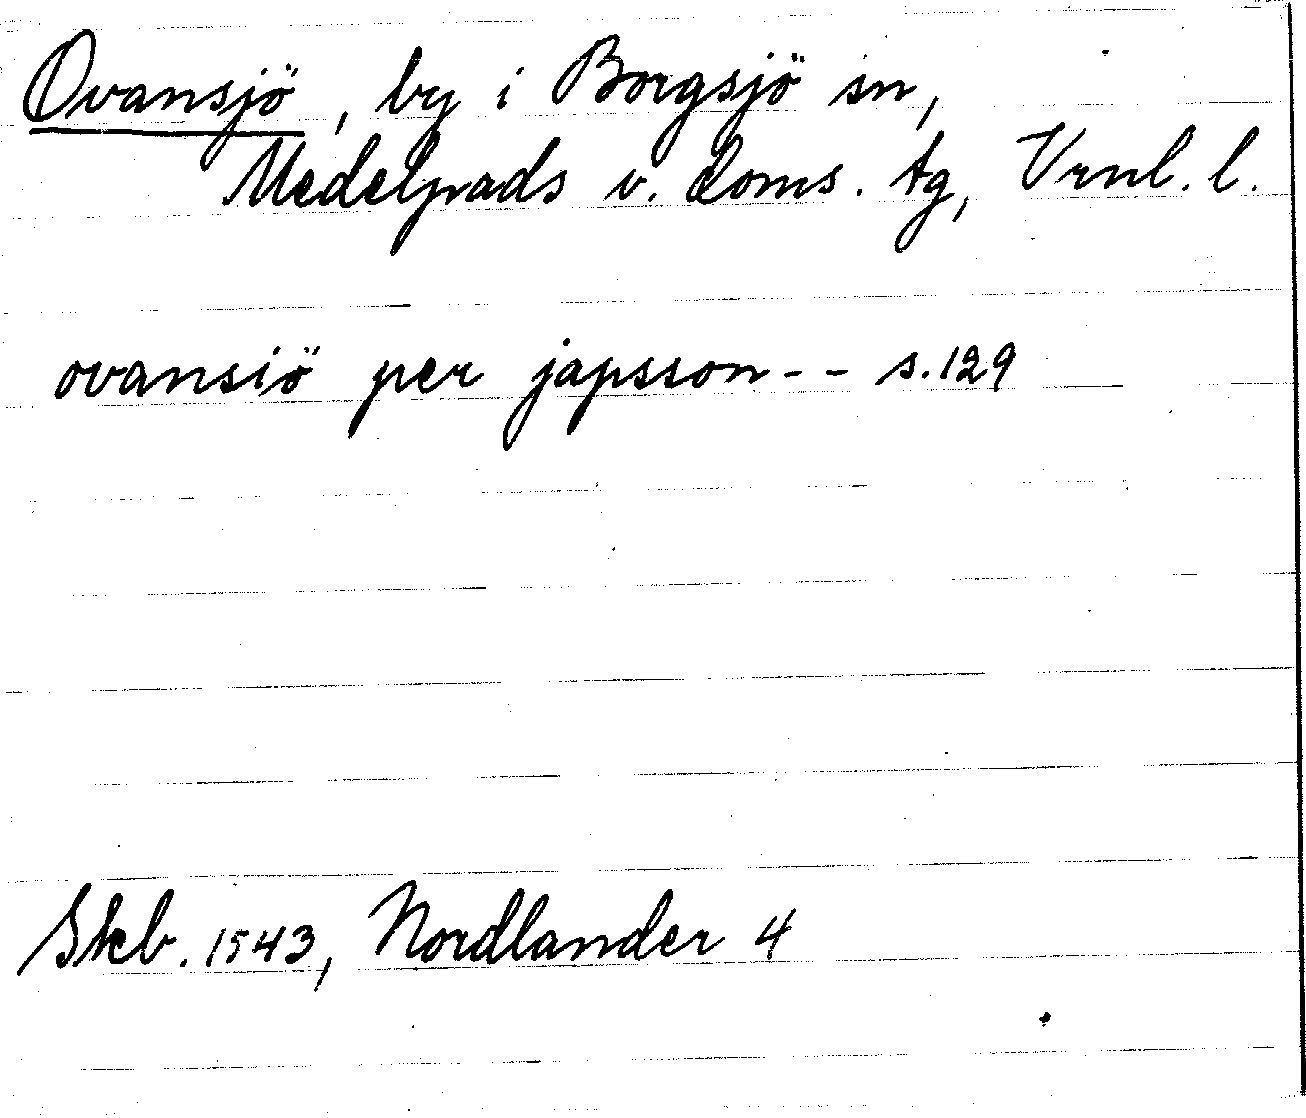 Ovansjö, by i Borgsjö sn,
Medelpads v. doms. tg, Vrnl. l.
ovansiö per japsson - - s. 129
Skb. 1543, Nordlander 4